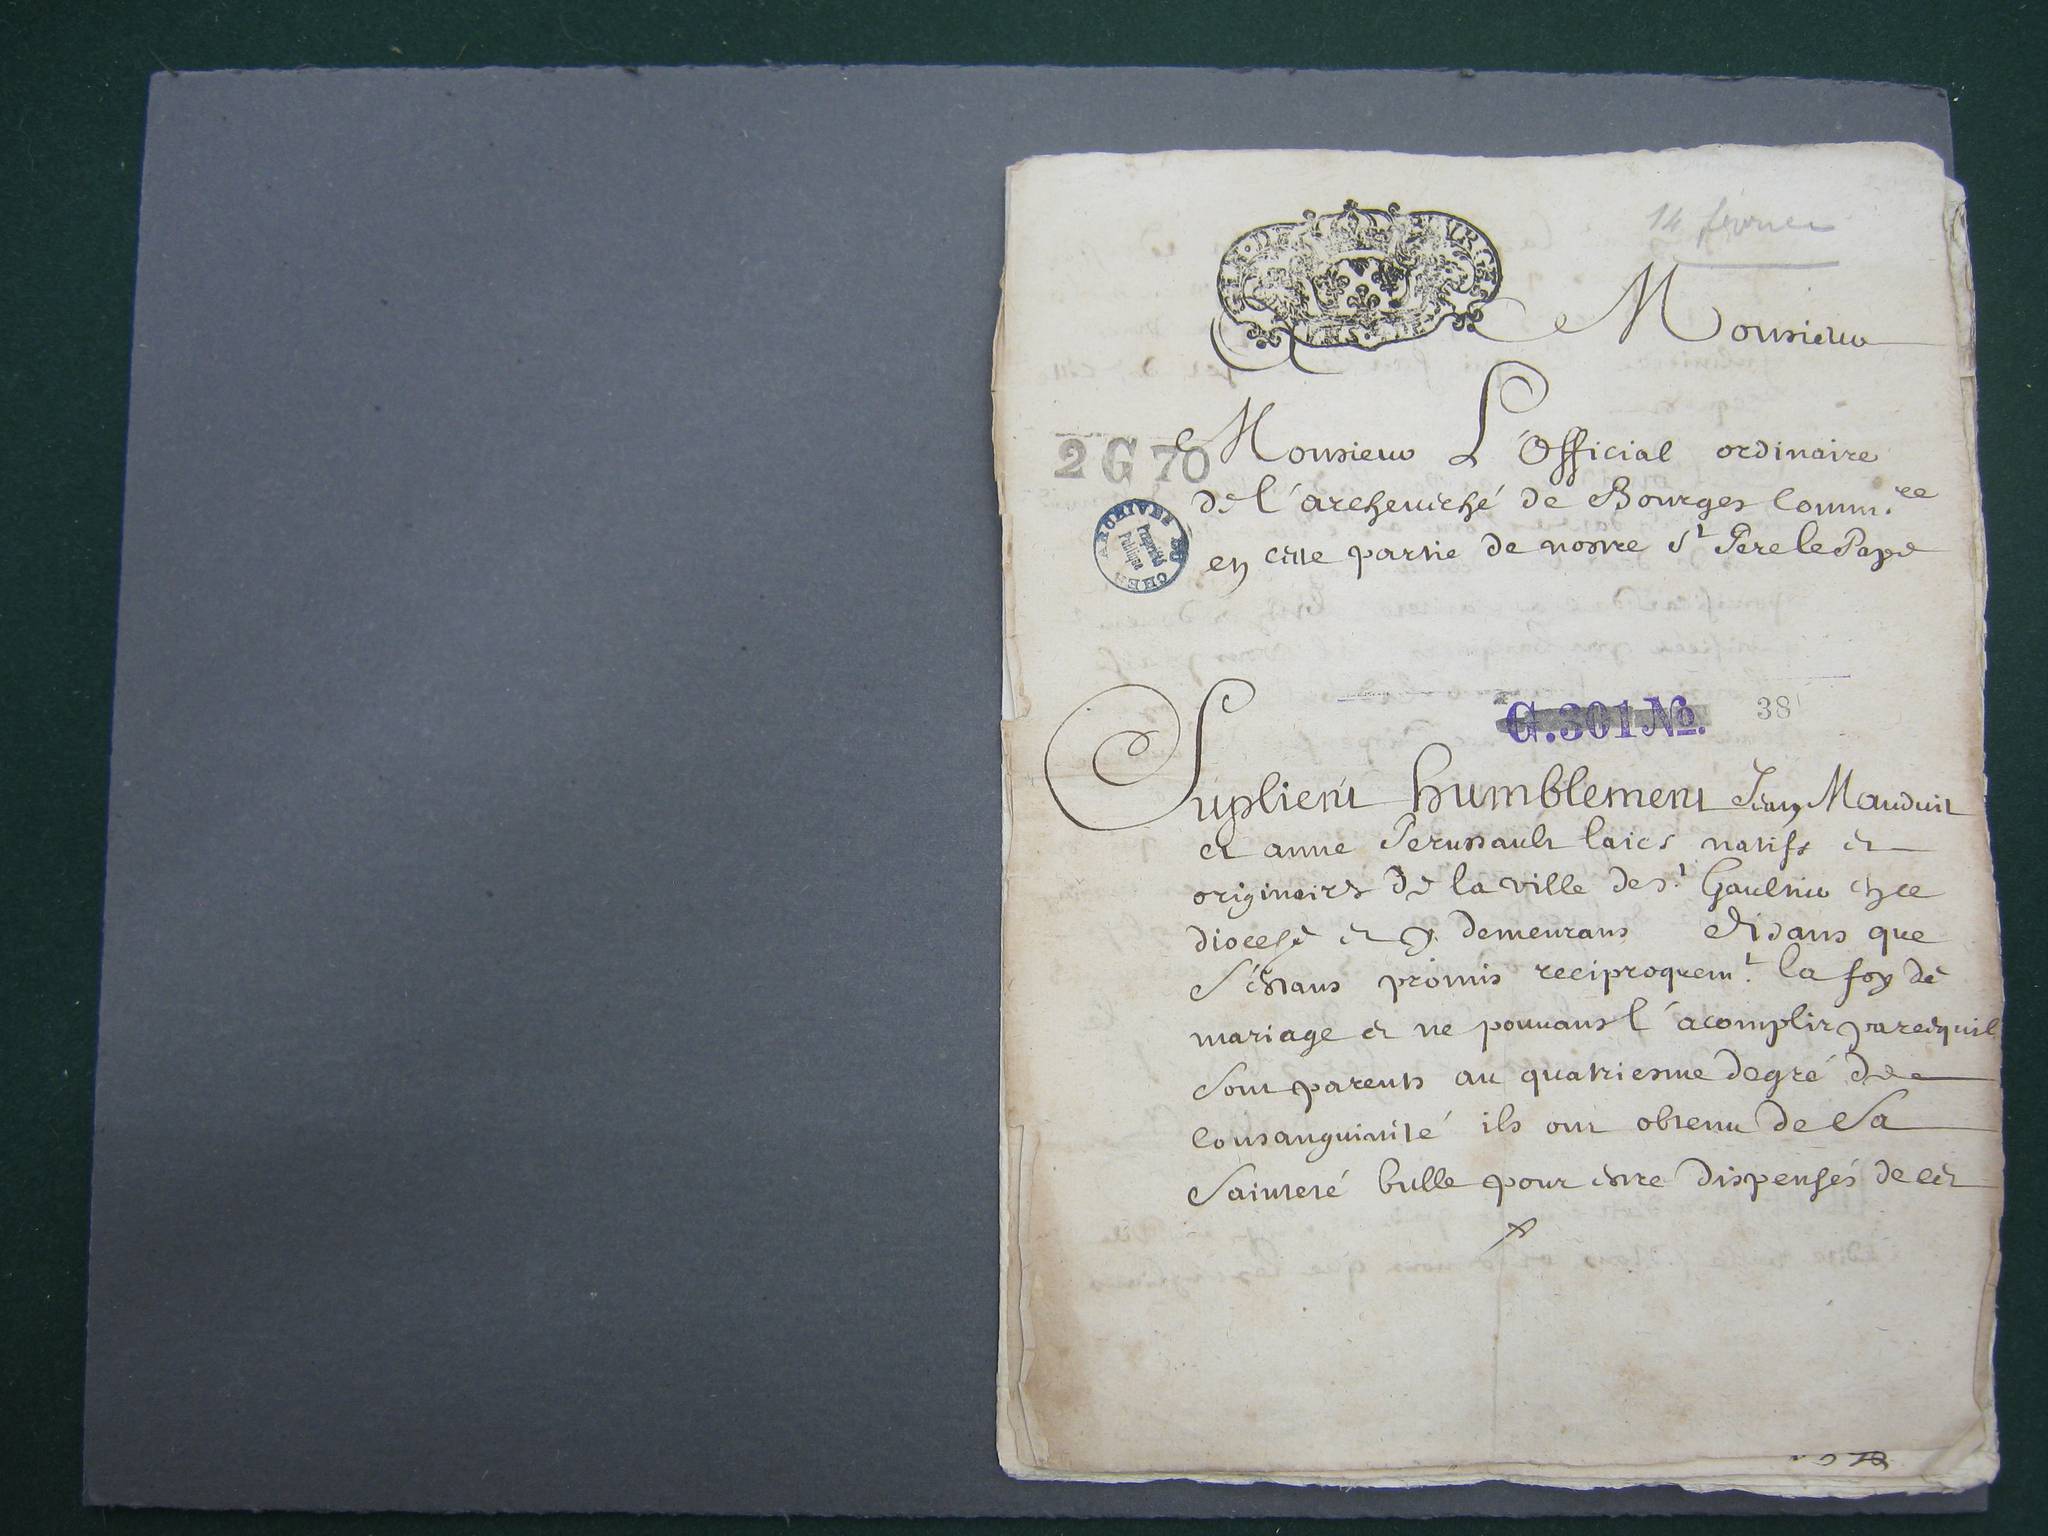 14 février
GEN. DE
Monsieur
2 G 70
Monsieur L'Official ordinaire
de l'archeuesché de Bourges Comm.re
en cette partie de nostre St Pere le Pape
ARCHIVES DU CHER
Propriété
Publique
G.301 No. 38
Suplient humblement Jean Mauduit
et anne Perussault laics natifs et
originaires de la ville de St Gaultier en ce
diocese et y demeurans Disans que
S'estans promis reciproquemt la foy de
mariage et ne pouuans l'acomplir parcequil
Sont parents au quatriesme degré de
Consanguinité ils ont obtenu de Sa
Sainteté bulle pour estre dispensés de cet